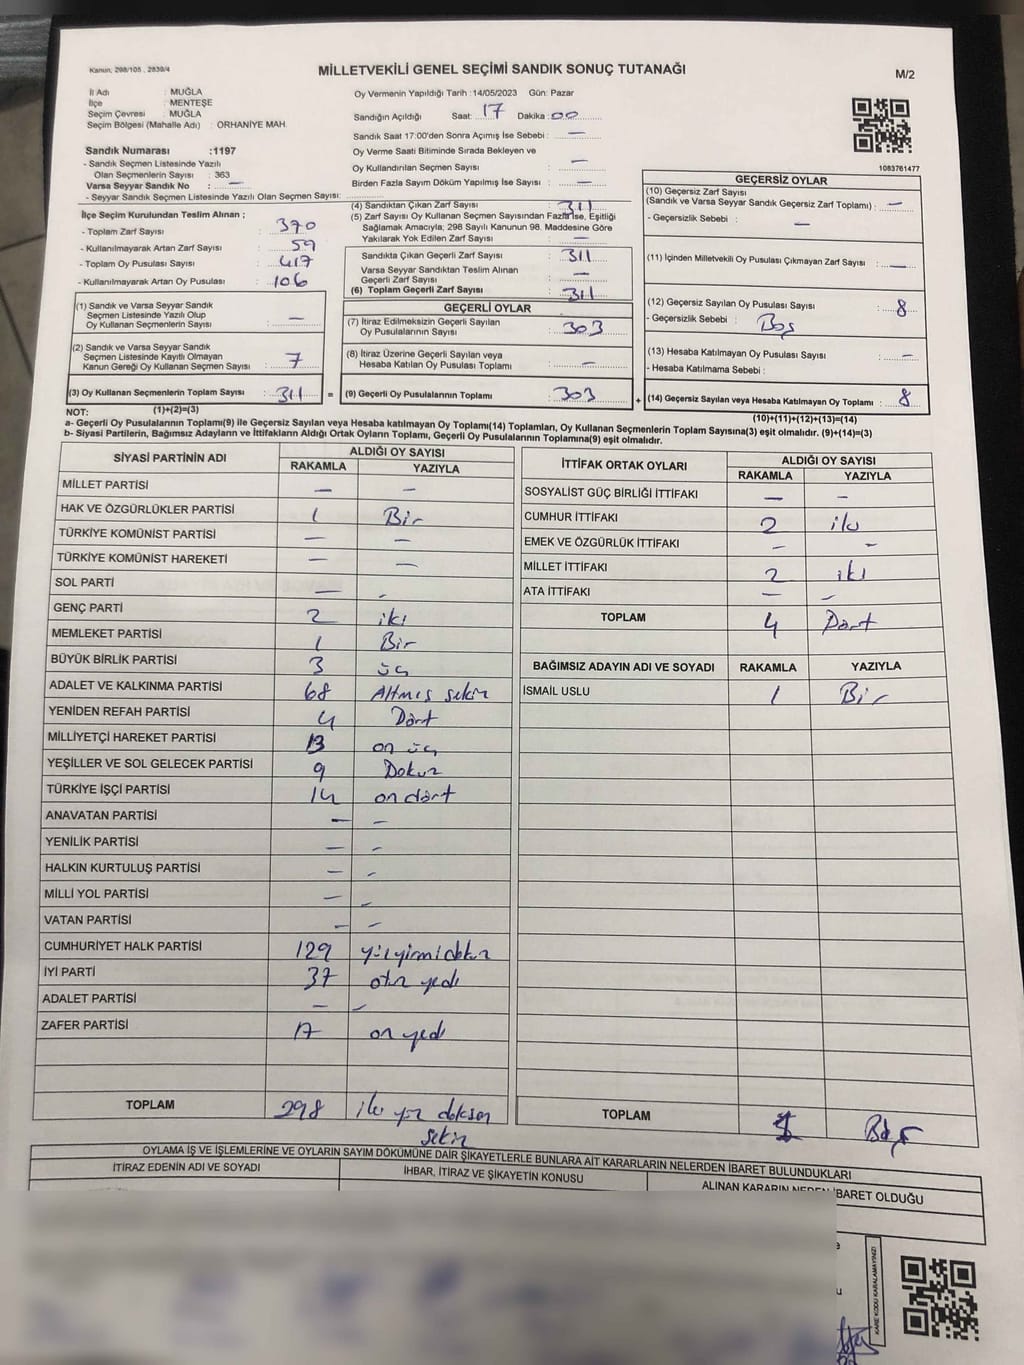 Kanun, 298/105 , 2839/4
MİLLETVEKİLİ GENEL SEÇİMİ SANDIK SONUÇ TUTANAĞI
M/2
İl Adı : MUĞLA
İlçe : MENTEŞE
Seçim Çevresi : MUĞLA
Seçim Bölgesi (Mahalle Adı) : ORHANİYE MAH.
Sandık Numarası :1197
- Sandık Seçmen Listesinde Yazılı
Olan Seçmenlerin Sayısı : 363
Varsa Seyyar Sandık No : —
- Seyyar Sandık Seçmen Listesinde Yazılı Olan Seçmen Sayısı:
Oy Vermenin Yapıldığı Tarih :14/05/2023 Gün: Pazar
Sandığın Açıldığı Saat: 17 Dakika: 00
Sandık Saat 17:00'den Sonra Açımış İse Sebebi : —
Oy Verme Saati Bitiminde Sırada Bekleyen ve
Oy Kullandırılan Seçmen Sayısı : —
Birden Fazla Sayım Döküm Yapılmış İse Sayısı : —
1083761477
İlçe Seçim Kurulundan Teslim Alınan ;
- Toplam Zarf Sayısı : 370
- Kullanılmayarak Artan Zarf Sayısı : 59
- Toplam Oy Pusulası Sayısı : 417
- Kullanılmayarak Artan Oy Pusulası : 106
(1) Sandık ve Varsa Seyyar Sandık
Seçmen Listesinde Yazılı Olup
Oy Kullanan Seçmenlerin Sayısı : —
(2) Sandık ve Varsa Seyyar Sandık
Seçmen Listesinde Kayıtlı Olmayan
Kanun Gereği Oy Kullanan Seçmen Sayısı : 7
(3) Oy Kullanan Seçmenlerin Toplam Sayısı : 311 =
(1)+(2)=(3)
(4) Sandıktan Çıkan Zarf Sayısı : 311
(5) Zarf Sayısı Oy Kullanan Seçmen Sayısından Fazla İse, Eşitliği
Sağlamak Amacıyla; 298 Sayılı Kanunun 98. Maddesine Göre
Yakılarak Yok Edilen Zarf Sayısı : —
Sandıkta Çıkan Geçerli Zarf Sayısı : 311
Varsa Seyyar Sandıktan Teslim Alınan
Geçerli Zarf Sayısı : —
(6) Toplam Geçerli Zarf Sayısı : 311
GEÇERLİ OYLAR
(7) İtiraz Edilmeksizin Geçerli Sayılan
Oy Pusulalarının Sayısı : 303
(8) İtiraz Üzerine Geçerli Sayılan veya
Hesaba Katılan Oy Pusulası Toplamı : —
(9) Geçerli Oy Pusulalarının Toplamı : 303 +
GEÇERSİZ OYLAR
(10) Geçersiz Zarf Sayısı
(Sandık ve Varsa Seyyar Sandık Geçersiz Zarf Toplamı) : —
- Geçersizlik Sebebi : —
(11) İçinden Milletvekili Oy Pusulası Çıkmayan Zarf Sayısı : —
(12) Geçersiz Sayılan Oy Pusulası Sayısı : 8
- Geçersizlik Sebebi : Boş
(13) Hesaba Katılmayan Oy Pusulası Sayısı : —
- Hesaba Katılmama Sebebi :
(14) Geçersiz Sayılan veya Hesaba Katılmayan Oy Toplamı : 8
(10)+(11)+(12)+(13)=(14)
NOT:
a- Geçerli Oy Pusulalarının Toplamı(9) ile Geçersiz Sayılan veya Hesaba katılmayan Oy Toplamı(14) Toplamları, Oy Kullanan Seçmenlerin Toplam Sayısına(3) eşit olmalıdır. (9)+(14)=(3)
b- Siyasi Partilerin, Bağımsız Adayların ve İttifakların Aldığı Ortak Oyların Toplamı, Geçerli Oy Pusulalarının Toplamına(9) eşit olmalıdır.
SİYASİ PARTİNİN ADI ALDIĞI OY SAYISI
RAKAMLA YAZIYLA
MİLLET PARTİSİ — —
HAK VE ÖZGÜRLÜKLER PARTİSİ 1 Bir
TÜRKİYE KOMÜNİST PARTİSİ — —
TÜRKİYE KOMÜNİST HAREKETİ — —
SOL PARTİ — -
GENÇ PARTİ 2 iki
MEMLEKET PARTİSİ 1 Bir
BÜYÜK BİRLİK PARTİSİ 3 üç
ADALET VE KALKINMA PARTİSİ 68 Altmış sekiz
YENİDEN REFAH PARTİSİ 4 Dört
MİLLİYETÇİ HAREKET PARTİSİ 13 on üç
YEŞİLLER VE SOL GELECEK PARTİSİ 9 Dokuz
TÜRKİYE İŞÇİ PARTİSİ 14 on dört
ANAVATAN PARTİSİ — -
YENİLİK PARTİSİ — -
HALKIN KURTULUŞ PARTİSİ — -
MİLLİ YOL PARTİSİ — -
VATAN PARTİSİ — -
CUMHURİYET HALK PARTİSİ 129 yüzyirmidokuz
İYİ PARTİ 37 otuz yedi
ADALET PARTİSİ — -
ZAFER PARTİSİ 17 on yedi
TOPLAM 298 iki yüz doksan
sekiz
İTTİFAK ORTAK OYLARI ALDIĞI OY SAYISI
RAKAMLA YAZIYLA
SOSYALİST GÜÇ BİRLİĞİ İTTİFAKI — -
CUMHUR İTTİFAKI 2 iki
EMEK VE ÖZGÜRLÜK İTTİFAKI - -
MİLLET İTTİFAKI 2 iki
ATA İTTİFAKI — -
TOPLAM 4 Dört
BAĞIMSIZ ADAYIN ADI VE SOYADI RAKAMLA YAZIYLA
İSMAİL USLU 1 Bir
TOPLAM
OYLAMA İŞ VE İŞLEMLERİNE VE OYLARIN SAYIM DÖKÜMÜNE DAİR ŞİKAYETLERLE BUNLARA AİT KARARLARIN NELERDEN İBARET BULUNDUKLARI
İTİRAZ EDENİN ADI VE SOYADI İHBAR, İTİRAZ VE ŞİKAYETİN KONUSU ALINAN KARARIN NEDEN İBARET OLDUĞU
KARE KODU KARALAMAYINIZ!